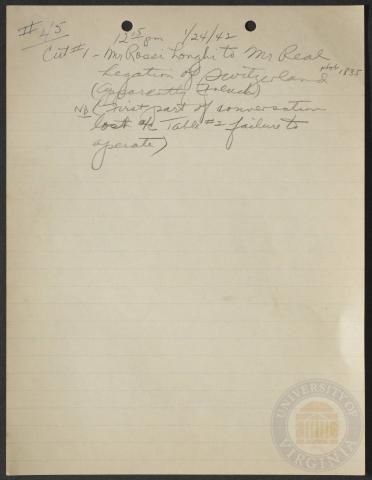 #45
12:15 pm 1/24/42
Cut #1 - Mr Rossi Longhi to Mr Real
Legation of Switzerland Hob. 1835
(apparently French)
NB (First part of conversation
lost a/c Table #2 failure to
operate)
UNIVERSITY OF VIRGINIA